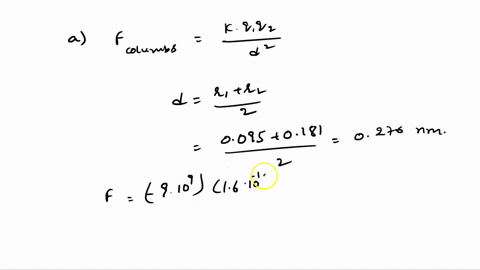 a) F columbs = K. q1 q2 / d²
d = r1 + r2 / 2
= 0.095 + 0.181 / 2 = 0.276 nm.
F = (-9.10⁹) (1.6.10⁻¹